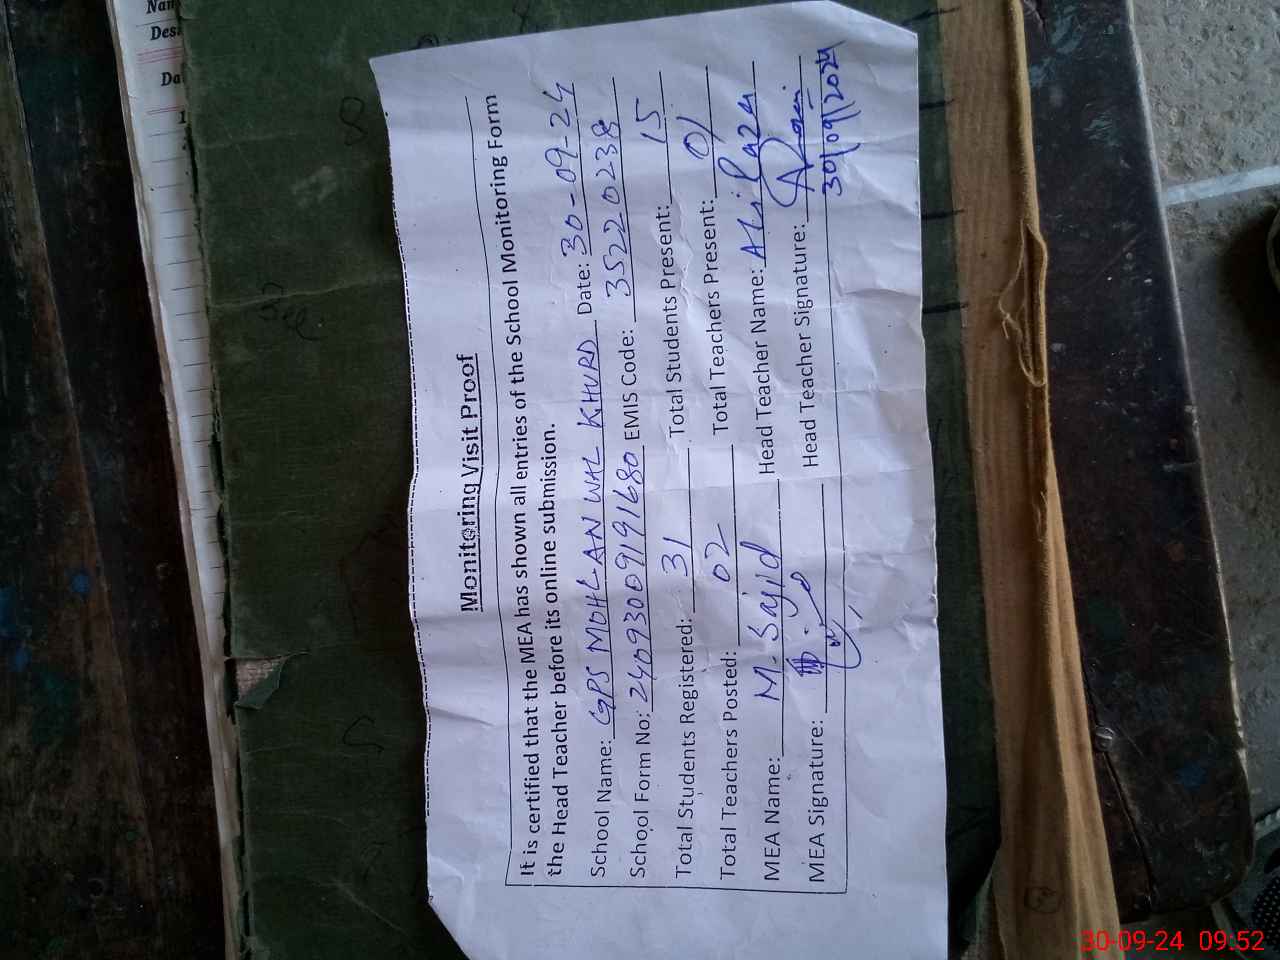 Nam
Desi
Da
1
Monitoring Visit Proof
It is certified that the MEA has shown all entries of the School Monitoring Form
the Head Teacher before its online submission.
School Name: GPS MOHLAN WAL KHURD Date: 30-09-24
School Form No: 24093009191680 EMIS Code: 35220238
Total Students Registered: 31 Total Students Present: 15
Total Teachers Posted: 02 Total Teachers Present: 01
MEA Name: M. Sajid Head Teacher Name: Ali Raza
MEA Signature: Head Teacher Signature:
30/09/2024
30-09-24 09:52